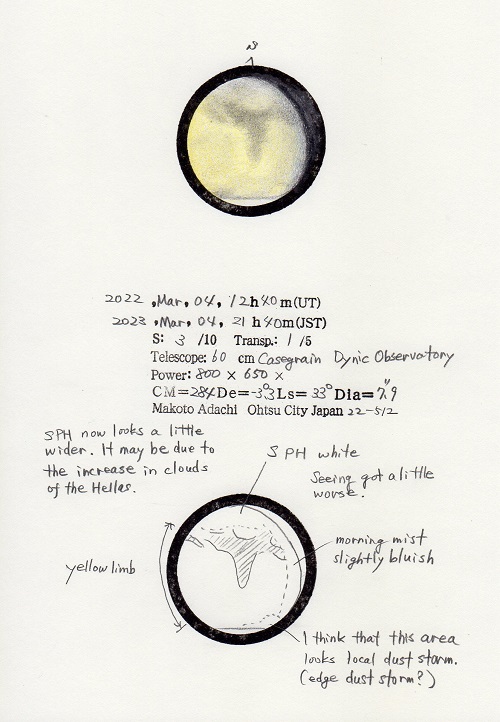 S
2022 ,Mar, 04, 12h40m(UT)
2023 ,Mar, 04, 21h40m(JST)
S: 3 /10 Transp.: 1 /5
Telescope: 60 cm Casegrain Dynic Observatory
Power: 800 × 650 ×
CM=284 De=-3.°3 Ls= 33° Dia= 7."9
Makoto Adachi Ohtsu City Japan 22-512
SPH now looks a little
wider. It may be due to
the increase in clouds
of the Hellas.
SPH white
Seeing got a little
worse.
morning mist
slightly bluish
yellow limb
I think that this area
looks local dust storm.
(edge dust storm?)